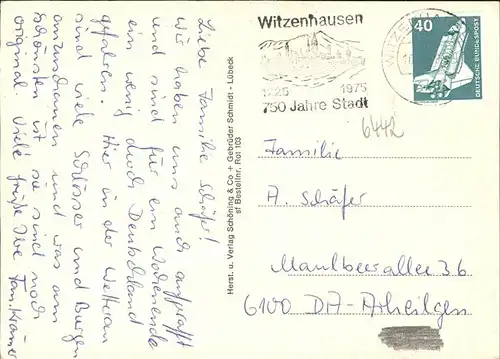 Liebe Familie Schäfer!
Wir haben uns auch aufgerafft
und sind für ein Wochenende
ein wenig durch Deutschland
gefahren. Hier in der
sind viele Schlösser und Burgen
anzuschauen und was am
schönsten ist sie sind noch
original. Viele Grüße Ihre Fam. Krämer
Herst. u. Verlag Schöning & Co + Gebrüder Schmidt - Lübeck
sf Bestellnr. Rot 103
Witzenhausen
1225 1975
750 Jahre Stadt
40
DEUTSCHE BUNDESPOST
6442
Familie
A. Schäfer
Maulbeerallee 36
6100 DA-Arheilgen